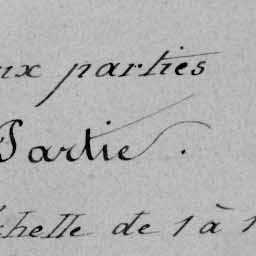 ux parties
Partie .
chelle de 1 à 1